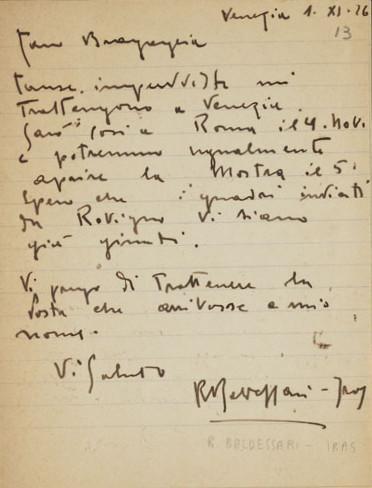 Venezia 1. XI. 26
13
Caro Bragaglia
cause imprevviste mi
trattengono a Venezia.
Sarò così a Roma il 4. Nov.
e potremmo ugualmente
aprire la Mostra il 5.
Spero che i quadri inviati
da Rovigno vi siano
già giunti.
Vi prego di trattenere la
posta che arrivasse a mio
nome.
Vi Saluto
R. Baldessari - Iras
R. BALDESSARI - IRAS